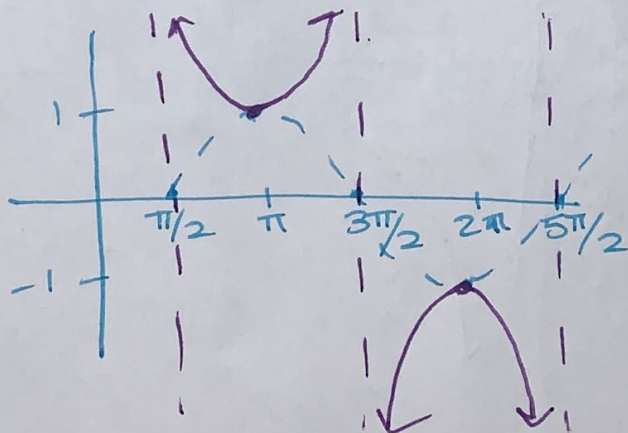 1
π/2 π 3π/2 2π 5π/2
-1